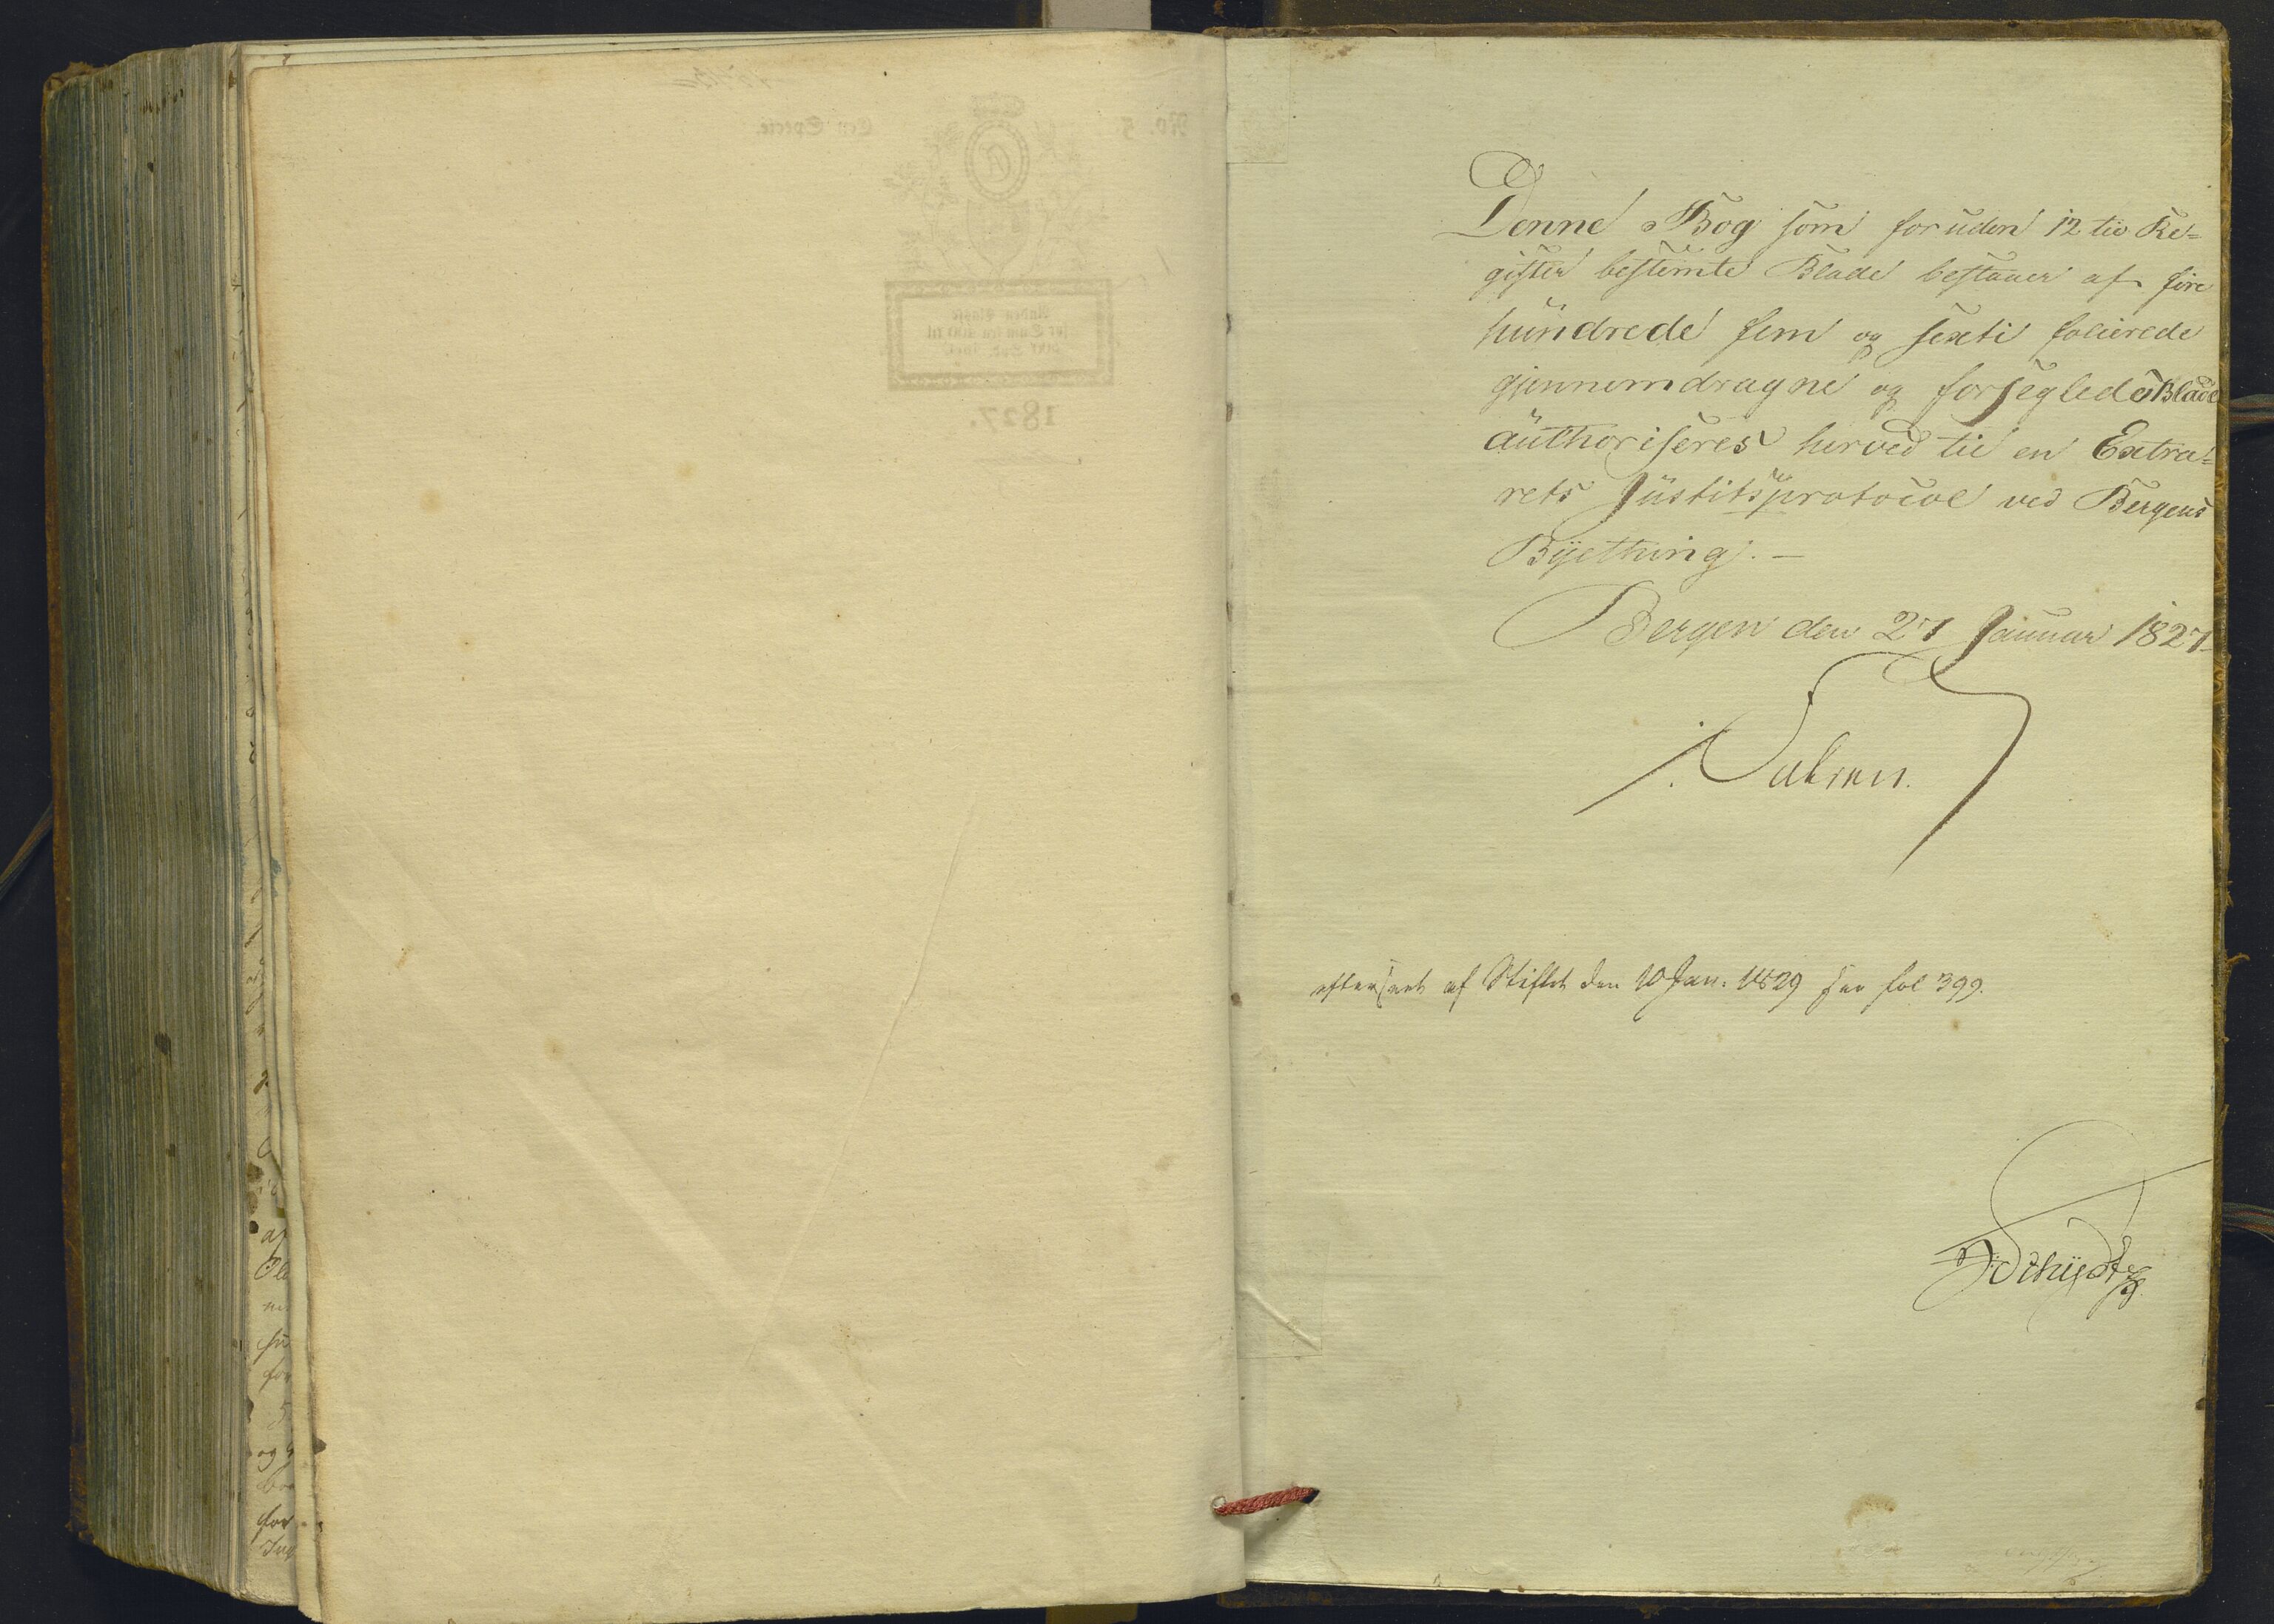 No. 5
Een Specie.
Anden Classe
1827.
Denne Bog som foruden 12 til Re=
gister bestemte Blade bestaaer af fire
hundrede fem og sexti folierede
gjennemdragne og forseglede Blade
authoriseres herved til en Extra=
rets Justitsprotocol ved Bergens
Byething. —
Bergen den 27 Januar 1827
eftersæt af Stiftet den 10 Jan: 1829 fol 399.
Schydtz